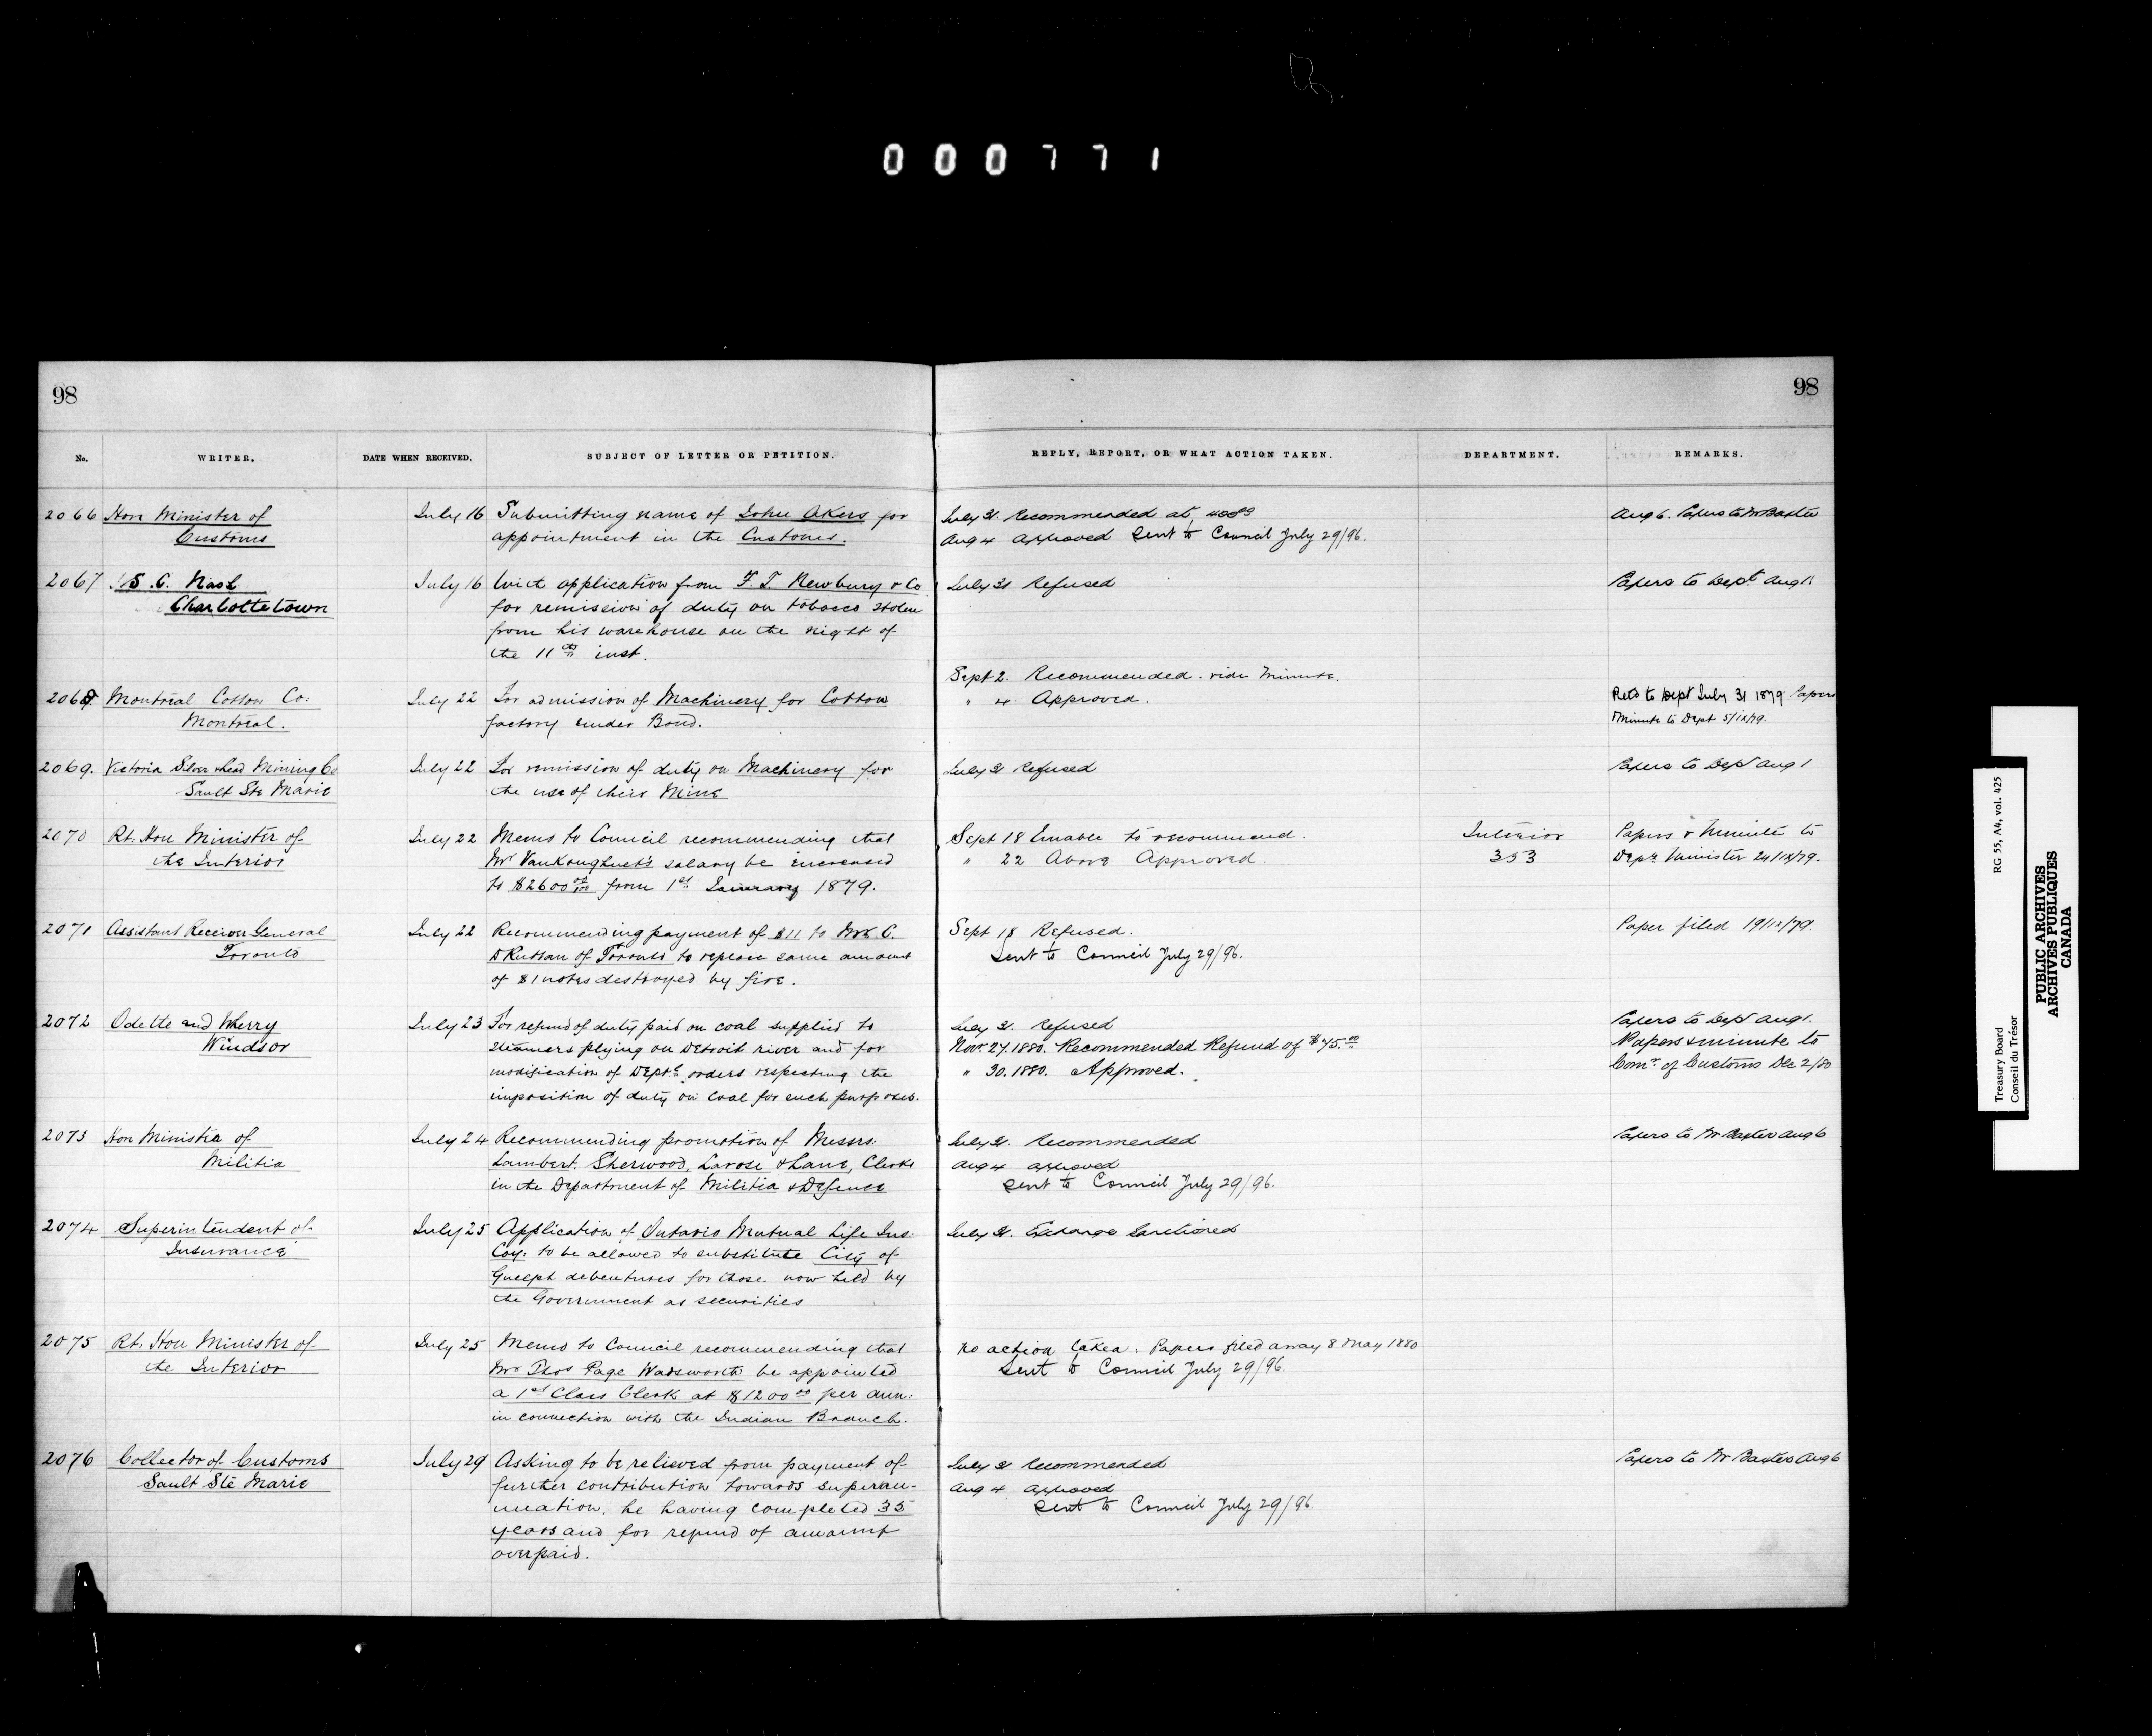 000771
98
98
No.
WRITER.
DATE WHEN RECEIVED.
SUBJECT OF LETTER OR PETITION.
REPLY, REPORT, OR WHAT ACTION TAKEN.
DEPARTMENT.
REMARKS.
2066 Hon Minister of July 16 Submitting name of John Akers for July 31. Recommended at Aug 6. Papers to Mr Baxter
Customs appointment in the Customs. Aug 4 Approved Sent to Council July 29/96.
2067 C. Nash July 16 With application from F. T. Newbury & Co July 31 Refused Papers to Dept Aug 1.
Charlottetown for remission of duty on tobacco stolen
from his warehouse on the night of
the 11th inst.
Sept 2. Recommended. vide Minute.
2068 Montreal Cotton Co: July 22 For admission of Machinery for Cotton " 4 Approved. Retd to Dept July 31 1879. Papers
Montreal. factory under Bond. & Minute to Dept 5/ix/79.
2069. Victoria Silver & Lead Mining Co July 22 For remission of duty on Machinery for July 31 Refused Papers to Dept Aug 1
Sault Ste Marie the use of their Mine
2070 Rt. Hon Minister of July 22 Memo to Council recommending that Sept 18 Unable to recommend. Interior Papers & Minute to
the Interior Mr VanKoughnet's salary be increased " 22 Above Approved. 353 Depy Minister 24/ix/79.
to $2600 00/100 from 1st January 1879.
2071 Assistant Receiver General July 22 Recommending payment of $11 to Mrs C. Sept 18 Refused. Paper filed 19/ix/79.
Toronto Ruttan of Toronto to replace same amount Sent to Council July 29/96.
of $1 notes destroyed by fire.
2072 Odette and Wherry July 23 For refund of duty paid on coal supplied to July 31. Refused Papers to Dept Aug 1.
Windsor steamers plying on Detroit river and for Nov. 27. 1880. Recommended Refund of $75.00 Papers & minute to
modification of Deptl orders respecting the " 30. 1880. Approved. Comr of Customs Dec 2/80
imposition of duty on coal for such purposes.
2073 Hon Minister of July 24 Recommending promotion of Messrs. July 31. Recommended Papers to Mr Baxter Aug 6
Militia Lambert, Sherwood, Larose & Lane, Clerks Aug 4 approved
in the Department of Militia & Defence Sent to Council July 29/96.
2074 Superintendent of July 25 Application of Ontario Mutual Life Ins: July 31. Exchange Sanctioned
Insurance Coy: to be allowed to substitute City of
Guelph debentures for those now held by
the Government as securities
2075 Rt. Hon Minister of July 25 Memo to Council recommending that No action taken. Papers filed away 8 May 1880
the Interior Mr Thos Page Wadsworth be appointed Sent to Council July 29/96.
a 1st Class Clerk at $1200 00 per ann.
in connection with the Indian Branch.
2076 Collector of Customs July 29 Asking to be relieved from payment of July 31 Recommended Papers to Mr Baxter Aug 6
Sault Ste Marie further contribution towards superan- Aug 4 approved
nuation, he having completed 35 Sent to Council July 29/96
years and for refund of amount
overpaid.
Treasury Board RG 55, A4, vol. 425
Conseil du Trésor
PUBLIC ARCHIVES
ARCHIVES PUBLIQUES
CANADA